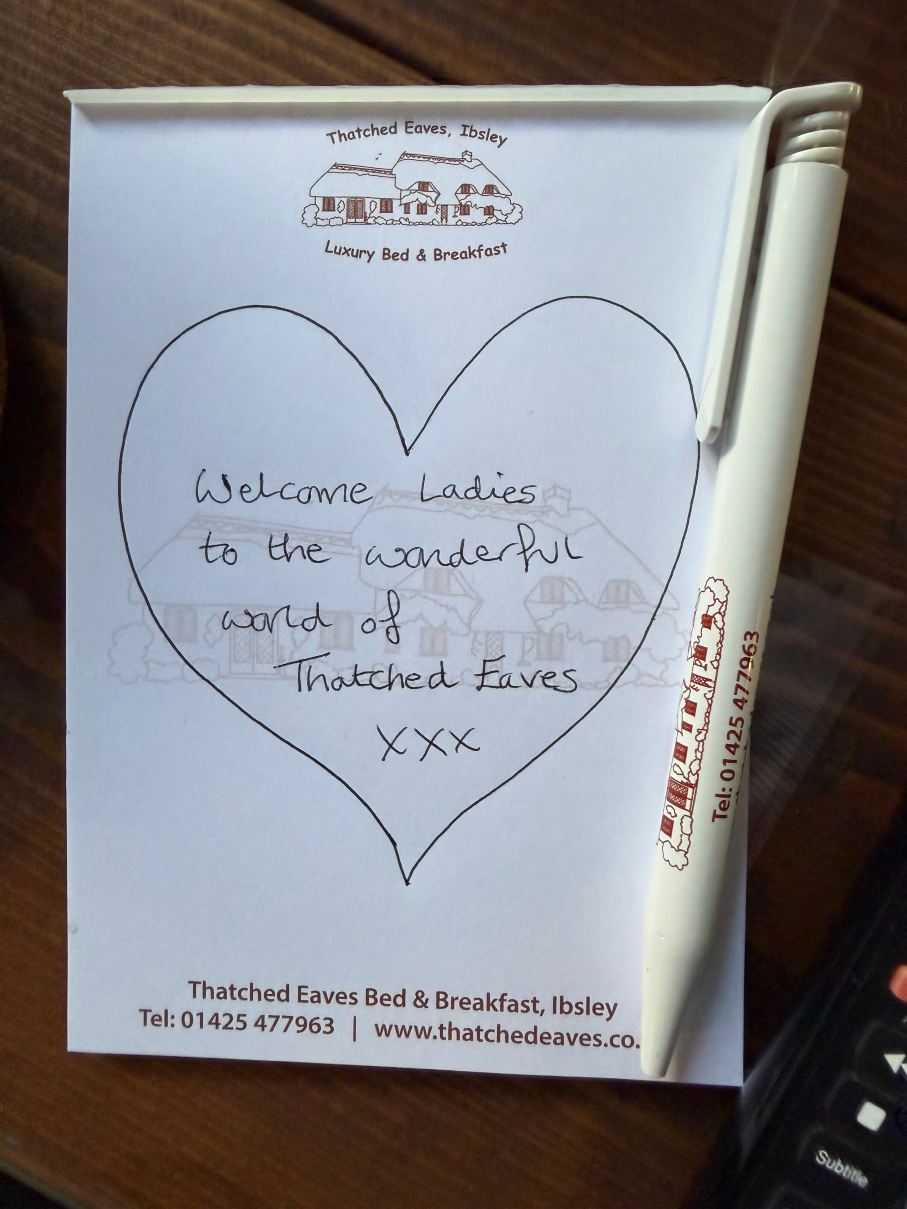 Thatched Eaves, Ibsley
Luxury Bed & Breakfast
Welcome Ladies
to the wonderful
world of
Thatched Eaves
XXX
Thatched Eaves Bed & Breakfast, Ibsley
Tel: 01425 477963 | www.thatchedeaves.co.
Tel: 01425 477963
Subtitle